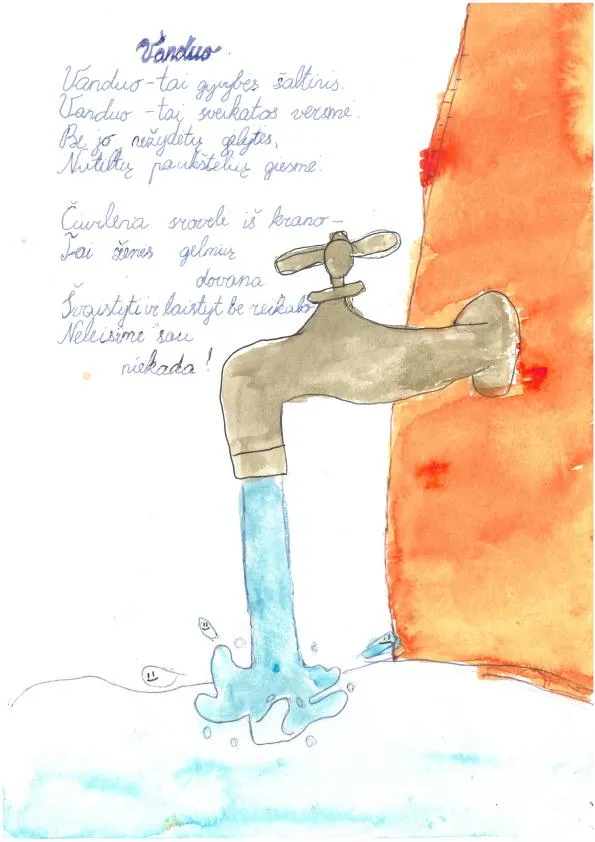 Vanduo
Vanduo-tai gyvybės šaltinis.
Vanduo -tai sveikatos versmė.
Be jo nežydėtų gėlytės,
Nutiltų paukštelių giesmė.
Čiurlena srovelė iš krano-
Tai žemės gelmių
dovana
Švaistyti ir laistyt be reikalo
Neleisime sau
niekada!